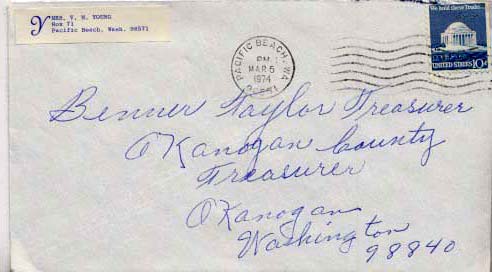 y
MRS. V. M. YOUNG
Box 71
Pacific Beach, Wash. 98571
PACIFIC BEACH, WA
PM
MAR 5
1974
We hold these Truths
UNITED STATES 10c
Benner Taylor Treasurer
Okanogan County
Treasurer
Okanogan
Washington
98840